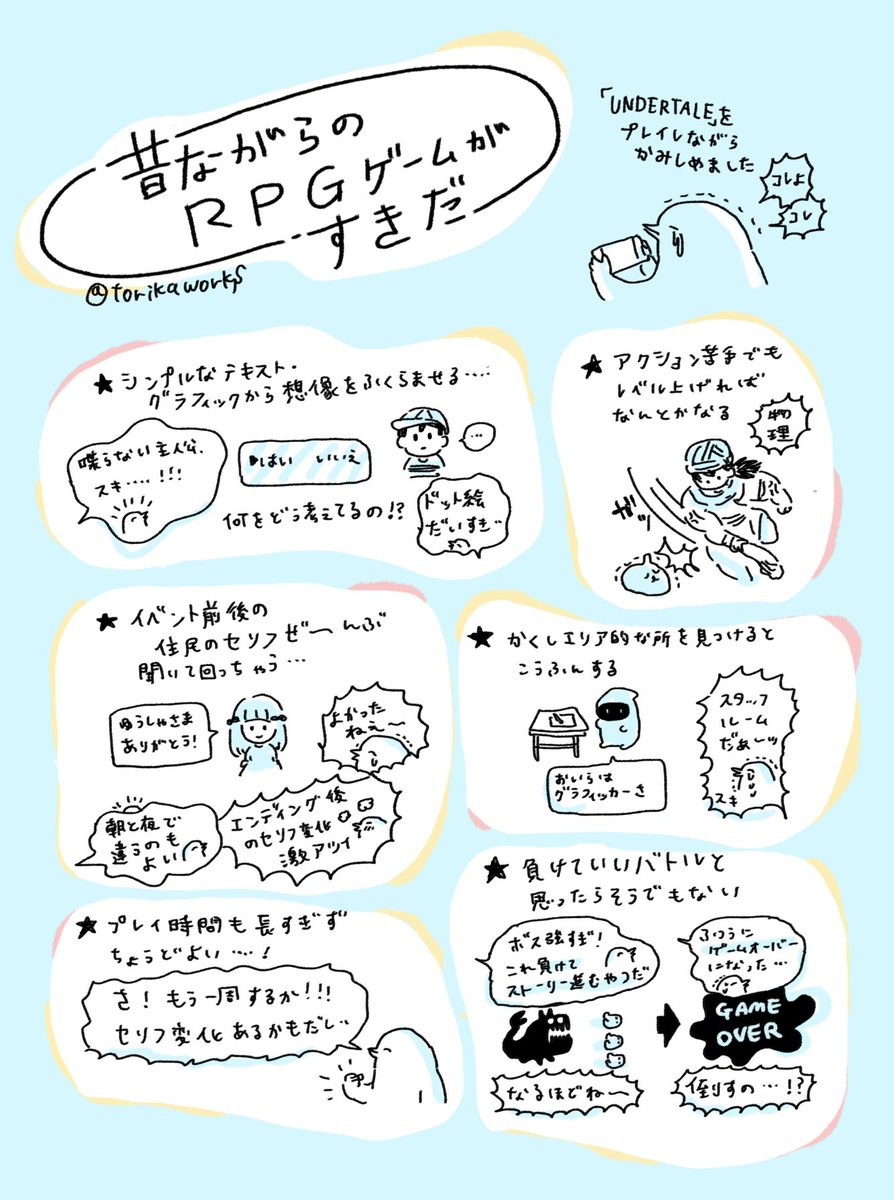 昔ながらの
RPGゲームが
すきだ
@torikaworks
「UNDERTALE」を
プレイしながら
かみしめました
コレよ
コレ
★シンプルなテキスト・
グラフィックから想像をふくらませる….
喋らない主人公、
スキ…..!!!
▶はい いいえ
…
何をどう考えてるの!?
ドット絵
だいすき
★アクション苦手でも
レベル上げれば
なんとかなる
物理
ガッ
★イベント前後の
住民のセリフぜ〜んぶ
聞いて回っちゃう…
ゆうしゃさま
ありがとう!
よかった
ねぇ〜
朝と夜で
違うのも
よい
エンディング後
のセリフ変化
激アツイ
★かくしエリア的な所を見つけると
こうふんする
おいらは
グラフィッカーさ
スタッフ
ルーム
だぁーッ
スキ
★プレイ時間も長すぎず
ちょうどよい….!
さ!もう一周するか!!!
セリフ変化あるかもだし..
★負けていいバトルと
思ったらそうでもない
ボス強すぎ!
これ負けて
ストーリー進むやつだ
なるほどね〜
ふつうに
ゲームオーバー
になった…
GAME
OVER
倒すの…!?